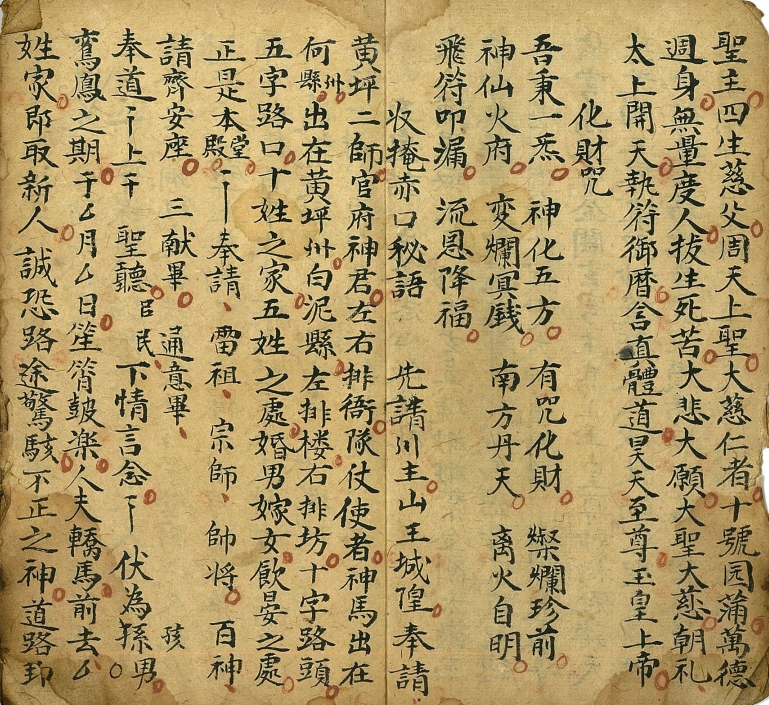 聖主四生慈父周天上聖大慈仁者十號园蒲萬德
週身無量度人拔生死苦大悲大願大聖大慈朝礼
太上開天執符御曆含直體道昊天至尊玉皇上帝
化財咒
吾秉一炁 神化五方 有咒化財 燦爛珍前
神仙火府 变爛冥錢 南方丹天 离火自明
飛符叩漏 流恩降福
收掩赤口秘語 先請川主山王城隍奉請
黄坪二師官府神君左右排衙隊仗使者神馬出在
何州縣出在黄坪州白泥縣左排楼右排坊十字路頭
五字路口十姓之家五姓之處婚男嫁女飲晏之處
正是本堂殿 奉請、雷祖、宗師、帥将、百神、
請齊安座 三献畢 通意畢、
奉道 上千 聖聽臣民下情言念 伏為孫男孩
鸞鳳之期于厶月厶日笙簫皷楽人夫轎馬前去厶
姓家郎取新人誠恐路途驚駭不正之神道路卭